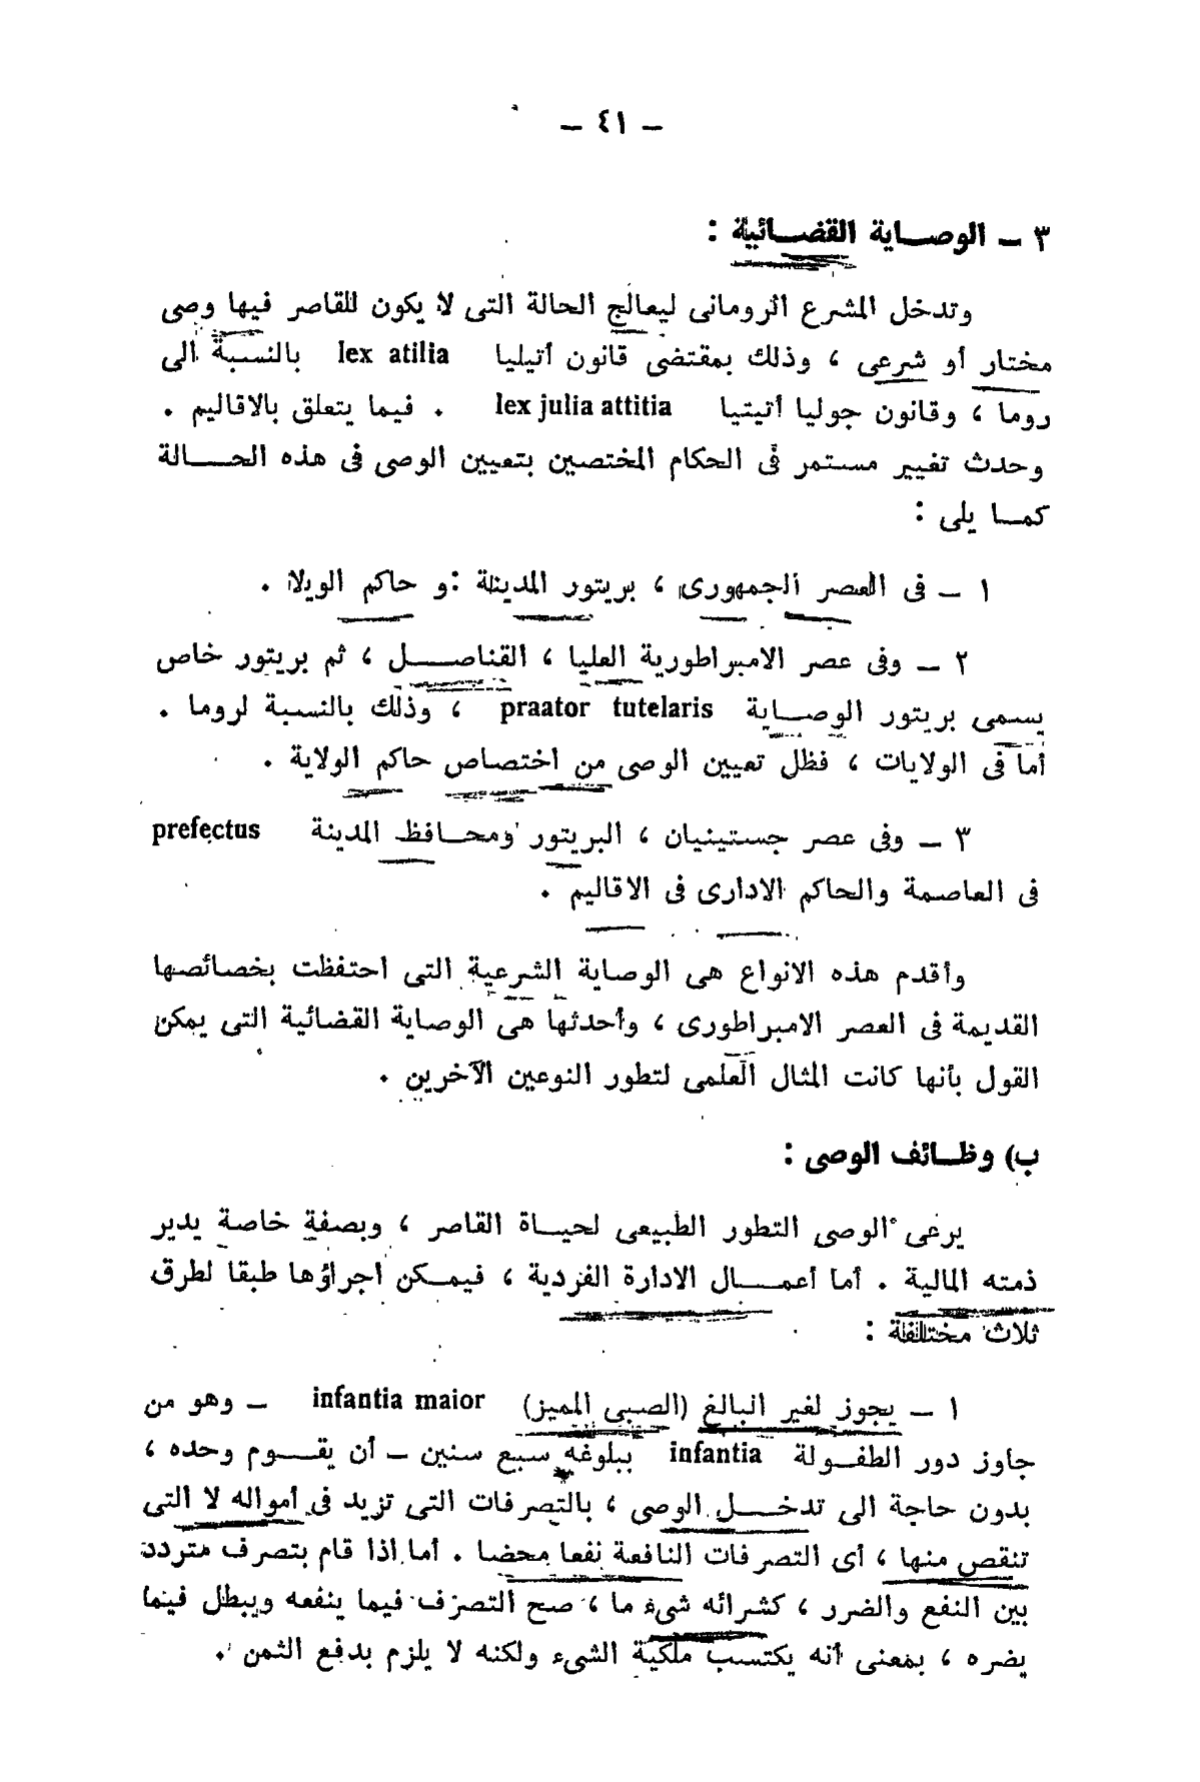 — ٤١ —
٣ — الوصاية القضائية :
وتدخل المشرع الرومانى ليعالج الحالة التى لا يكون للقاصر فيها وصى
مختار أو شرعى ، وذلك بمقتضى قانون أتيليا lex atilia بالنسبة الى
روما ، وقانون جوليا أتيتيا lex julia attitia . فيما يتعلق بالاقاليم .
وحدث تغيير مستمر فى الحكام المختصين بتعيين الوصى فى هذه الحالة
كما يلى :
١ — فى العصر الجمهورى ، بريتور المدينة :و حاكم الويلا .
٢ — وفى عصر الامبراطورية العليا ، القناصل ، ثم بريتور خاص
يسمى بريتور الوصاية praator tutelaris ، وذلك بالنسبة لروما .
أما فى الولايات ، فظل تعيين الوصى من اختصاص حاكم الولاية .
٣ — وفى عصر جستينيان ، البريتور ومحافظ المدينة prefectus
فى العاصمة والحاكم الادارى فى الاقاليم .
وأقدم هذه الانواع هى الوصاية الشرعية التى احتفظت بخصائصها
القديمة فى العصر الامبراطورى ، وأحدثها هى الوصاية القضائية التى يمكن
القول بأنها كانت المثال العلمى لتطور النوعين الآخرين .
ب) وظائف الوصى :
يرعى الوصى التطور الطبيعى لحياة القاصر ، وبصفة خاصة يدير
ذمته المالية . أما أعمال الادارة الفردية ، فيمكن اجراؤها طبقا لطرق
ثلاث مختلفة :
١ — يجوز لغير البالغ (الصبى المميز) infantia maior — وهو من
جاوز دور الطفولة infantia ببلوغه سبع سنين — أن يقوم وحده ،
بدون حاجة الى تدخل الوصى ، بالتصرفات التى تزيد فى أمواله لا التى
تنقص منها ، أى التصرفات النافعة نفعا محضا . أما اذا قام بتصرف متردد
بين النفع والضرر ، كشرائه شىء ما ، صح التصرف فيما ينفعه ويبطل فيما
يضره ، بمعنى أنه يكتسب ملكية الشىء ولكنه لا يلزم بدفع الثمن .